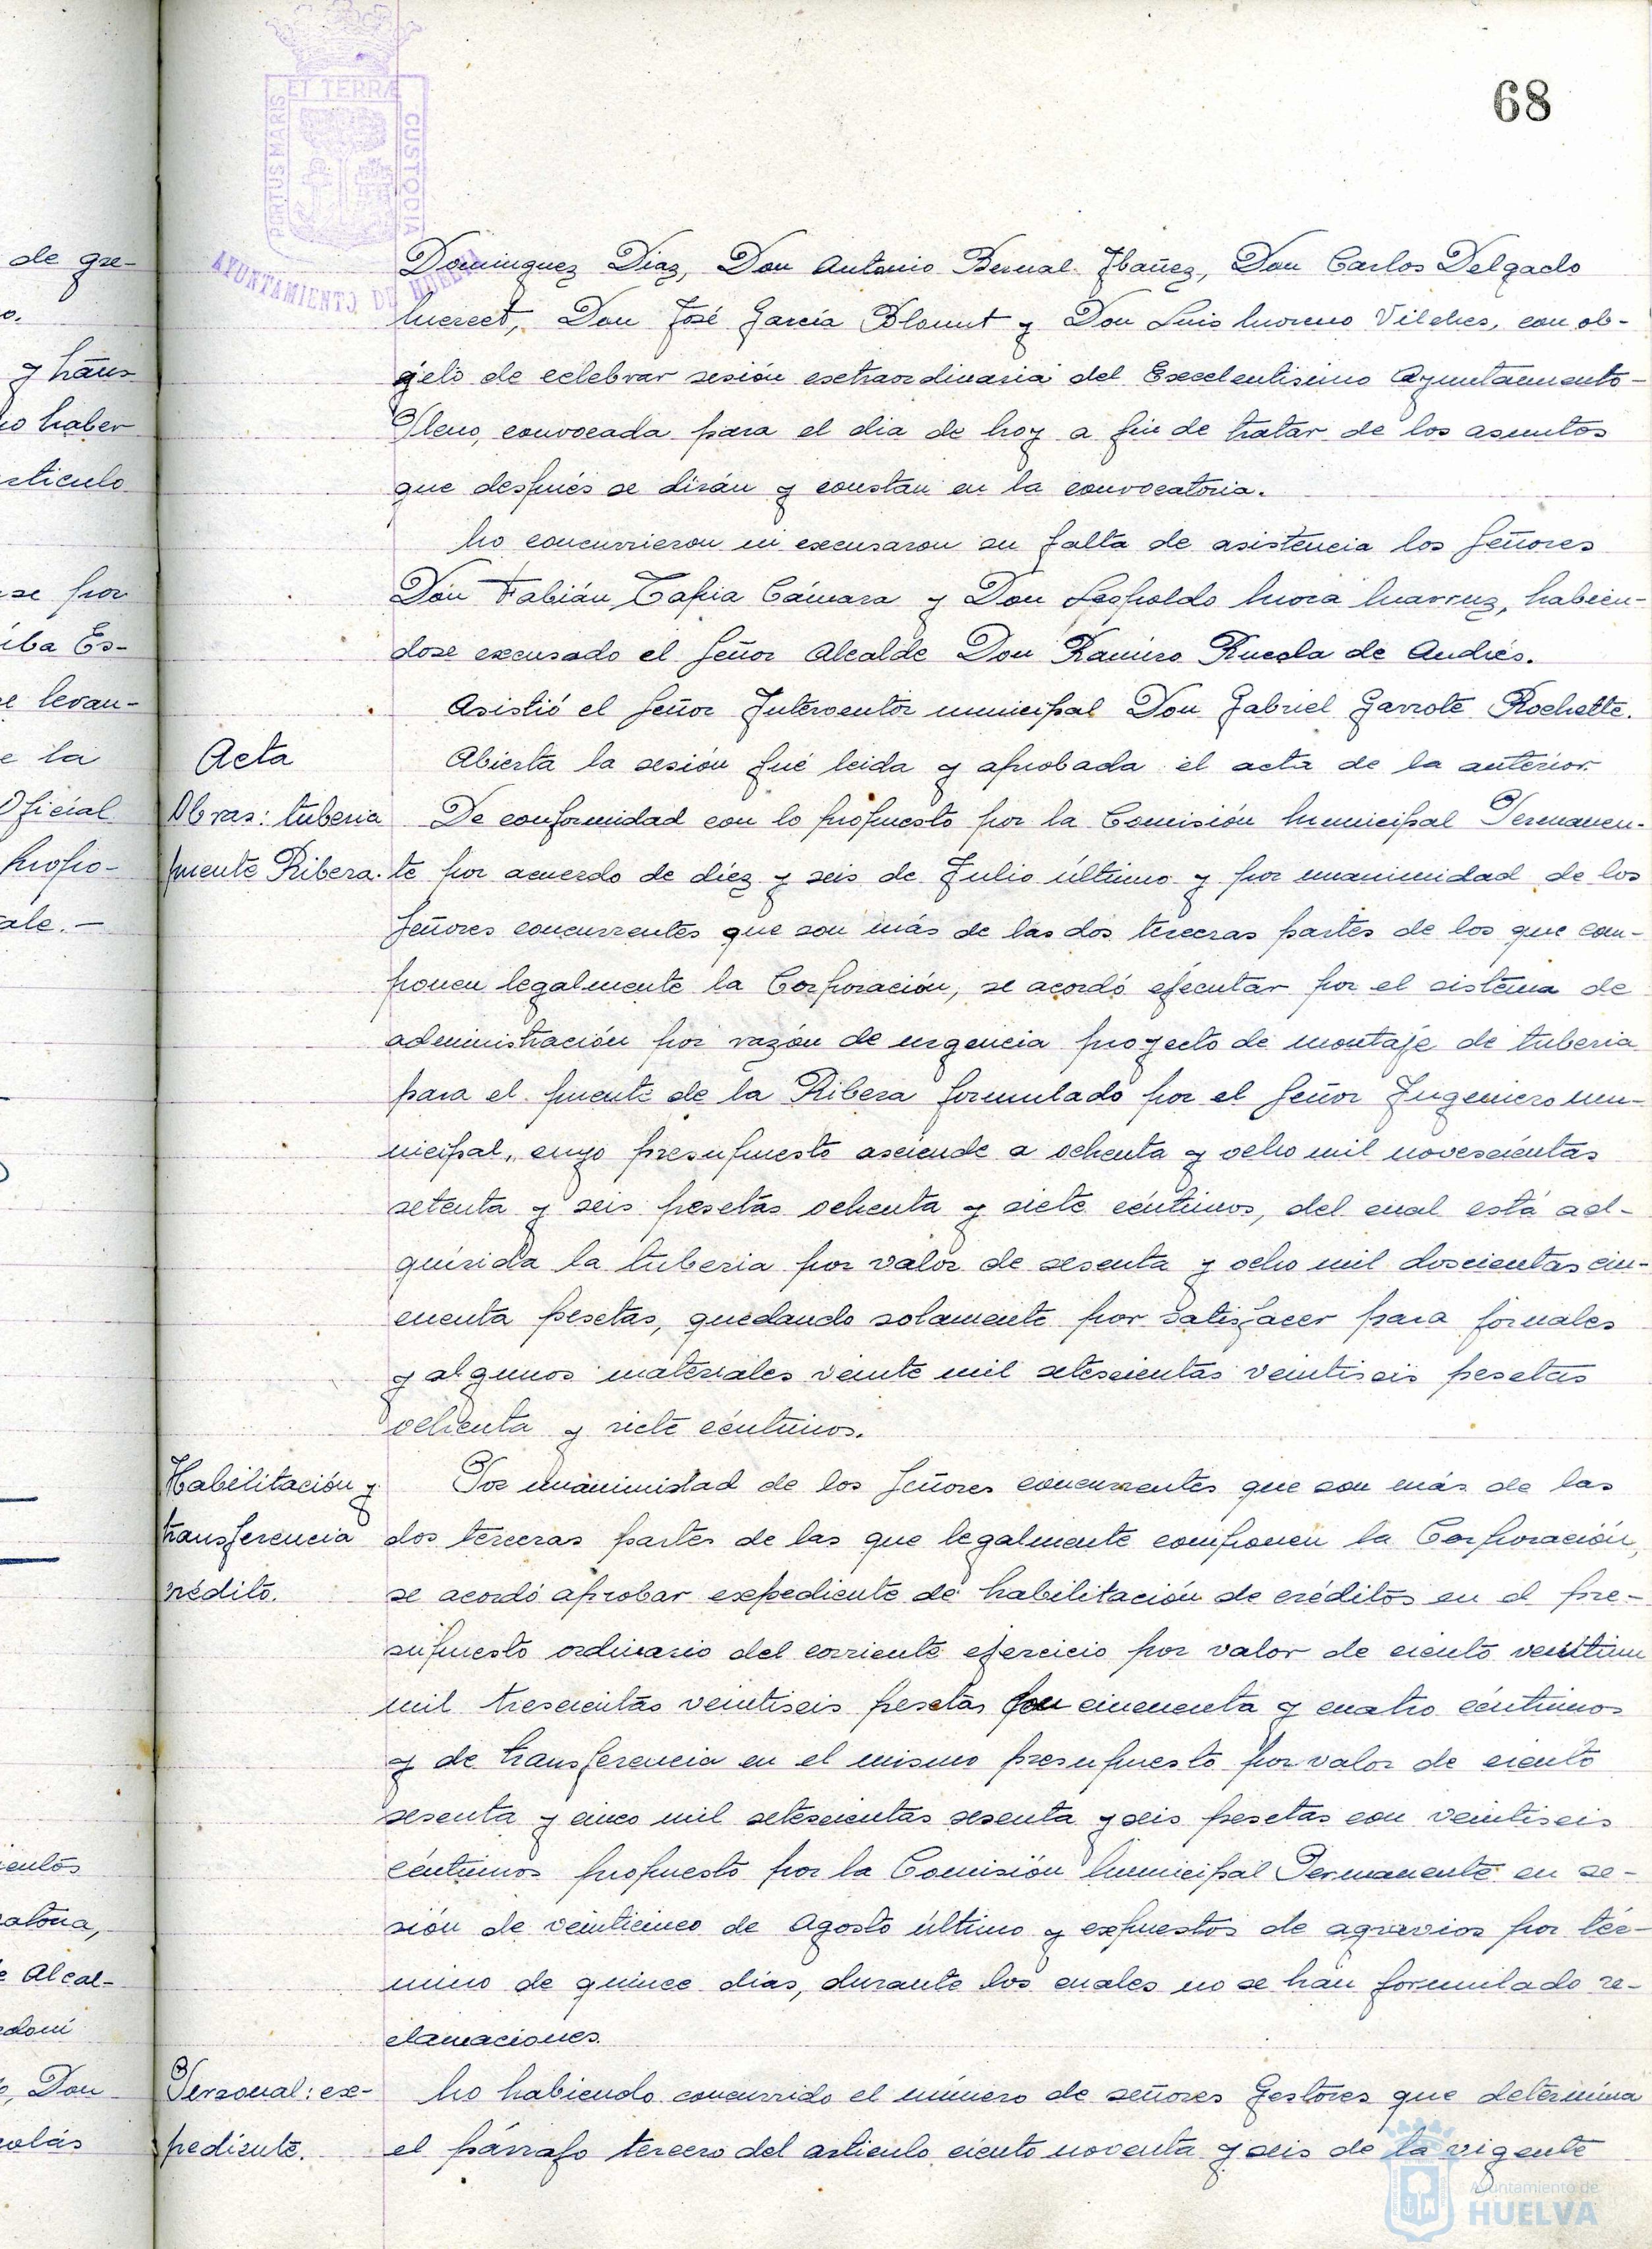 68
PORTUS MARIS ET TERRÆ CUSTODIA
AYUNTAMIENTO DE HUELVA
de gre-
o.
y trans
no haber
rticulo
se por
iba Es-
se levan-
e la
Oficial
propo-
ale.-
ientos
atoria,
e Alcal-
o, Don
olás
Dominguez Diaz, Don Antonio Bernal Ibañez, Don Carlos Delgado
Don José García Blount y Don Luis Moreno Vilches, con ob-
jeto de celebrar sesión esctraordinaria del Excelentisimo Ayuntamento-
Pleno, convocada para el dia de hoy a fin de tratar de los asuntos
que después se dirán y constan en la convocatoria.
No concurrieron ni excusaron su falta de asistencia los Señores
Don Fabián Tapia Cámara y Don Leopoldo Mora Marruz, habien-
dose excusado el Señor Alcalde Don Ramiro Rueda de Andrés.
Asistió el Señor Interventor municipal Don Gabriel Garrote Rochette.
Acta
Abierta la sesión fué leida y aprobada el acta de la anterior.
Obras: tuberia
puente Ribera.
De conformidad con lo propuesto por la Comisión Municipal Permanen-
te por acuerdo de diez y seis de Julio último y por unanimidad de los
Señores concurrentes que son más de las dos terceras partes de los que com-
ponen legalmente la Corporación, se acordó ejecutar por el sistema de
administración por razón de urgencia proyecto de montaje de tuberia
para el puente de la Ribera formulado por el Señor Ingeniero mu-
nicipal, cuyo presupuesto asciende a ochenta y ocho mil novescientas
setenta y seis pesetas ochenta y siete céntimos, del cual está ad-
quirida la tuberia por valor de sesenta y ocho mil doscientas cin-
cuenta pesetas, quedando solamente por satisfacer para jornales
y algunos materiales veinte mil setescientas veintiseis pesetas
ochenta y siete céntimos.
Habilitación y
transferencia
crédito.
Por unanimidad de los Señores concurrentes que son más de las
dos terceras partes de las que legalmente componen la Corporación,
se acordó aprobar expediente de habilitación de créditos en el pre-
supuesto ordinario del corriente ejercicio por valor de ciento veintiun
mil trescientas veintiseis pesetas con cincuenta y cuatro céntimos
y de transferencia en el mismo presupuesto por valor de ciento
sesenta y cinco mil setescientas sesenta y seis pesetas con veintiseis
céntimos propuesto por la Comisión Municipal Permanente en se-
sión de veinticinco de Agosto último y expuestos de agravios por tér-
mino de quince dias, durante los cuales no se han formulado re-
clamaciones.
Personal: ex-
pediente.
No habiendo concurrido el número de señores Gestores que determina
el párrafo tercero del articulo ciento noventa y seis de la vigente
Ayuntamiento de
HUELVA